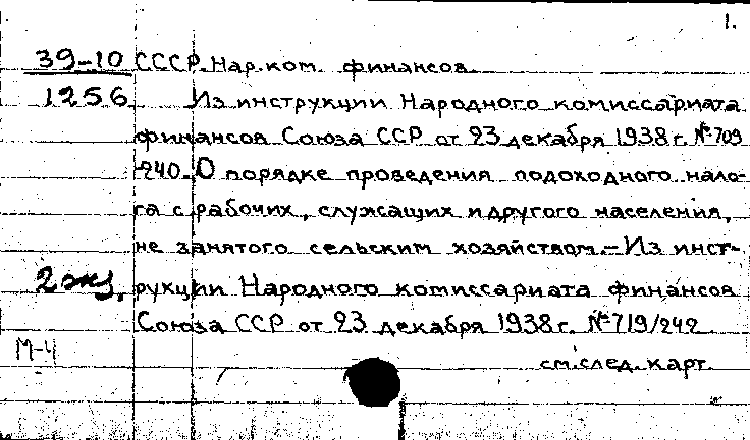 1.
39-10 СССР. Нар. ком. финансов.
1256 Из инструкции Народного комиссариата
финансов Союза ССР от 23 декабря 1938 г. № 709
240. О порядке проведения подоходного нало-
га с рабочих, служащих и другого населения,
не занятого сельским хозяйством. — Из инст-
2 экз. рукции Народного комиссариата финансов
Союза ССР от 23 декабря 1938 г. № 719/242
М-4
см. след. карт.